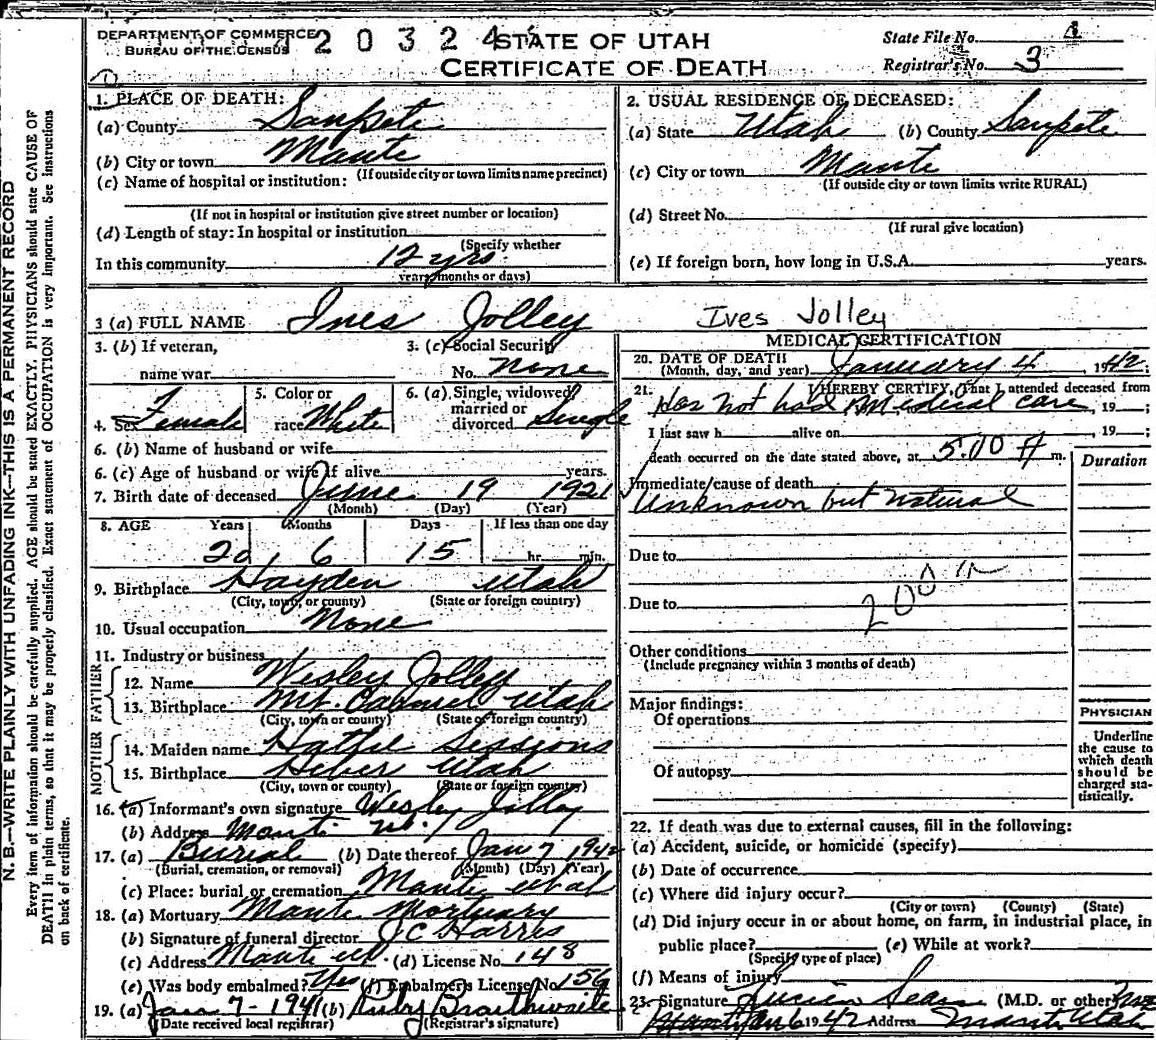 DEPARTMENT OF COMMERCE
BUREAU OF THE CENSUS
20324
STATE OF UTAH
CERTIFICATE OF DEATH
State File No. 4
Registrar's No. 3
N. B.—WRITE PLAINLY WITH UNFADING INK—THIS IS A PERMANENT RECORD
Every item of information should be carefully supplied. AGE should be stated EXACTLY. PHYSICIANS should state CAUSE OF
DEATH in plain terms, so that it may be properly classified. Exact statement of OCCUPATION is very important. See instructions
on back of certificate.
1. PLACE OF DEATH:
(a) County Sanpete
(b) City or town Manti
(If outside city or town limits name precinct)
(c) Name of hospital or institution:
(If not in hospital or institution give street number or location)
(d) Length of stay: In hospital or institution
(Specify whether
In this community 12 yrs.
years, months or days)
2. USUAL RESIDENCE OF DECEASED:
(a) State Utah (b) County Sanpete
(c) City or town Manti
(If outside city or town limits write RURAL)
(d) Street No.
(If rural give location)
(e) If foreign born, how long in U.S.A. years.
3 (a) FULL NAME Ines Jolley Ives Jolley
3. (b) If veteran,
name war
3. (c) Social Security
No. None
4. Sex Female
5. Color or
race White
6. (a) Single, widowed,
married or
divorced Single
6. (b) Name of husband or wife
6. (c) Age of husband or wife if alive years.
7. Birth date of deceased June 19 1921
(Month) (Day) (Year)
8. AGE Years Months Days If less than one day
20 6 15 hr. min.
9. Birthplace Hayden Utah
(City, town, or county) (State or foreign country)
10. Usual occupation None
11. Industry or business
FATHER
12. Name Wesley Jolley
13. Birthplace Mt. Carmel Utah
(City, town or county) (State or foreign country)
MOTHER
14. Maiden name Hattie Sessions
15. Birthplace Heber Utah
(City, town or county) (State or foreign country)
16. (a) Informant's own signature Wesley Jolley
(b) Address Manti Ut.
17. (a) Burial (b) Date thereof Jan 7 1942
(Burial, cremation, or removal) (Month) (Day) (Year)
(c) Place: burial or cremation Manti Utah
18. (a) Mortuary Manti Mortuary
(b) Signature of funeral director J C Harris
(c) Address Manti Ut. (d) License No. 148
(e) Was body embalmed? Yes (f) Embalmer's License No. 156
19. (a) Jan 7-1941 (b) Ruby Braithwaite
(Date received local registrar) (Registrar's signature)
MEDICAL CERTIFICATION
20. DATE OF DEATH
(Month, day, and year) January 4, 1942;
21. I HEREBY CERTIFY, That I attended deceased from
Has not had medical care, 19 ;
I last saw h alive on , 19 ;
death occurred on the date stated above, at 5.00 A m.
Duration
Immediate cause of death
Unknown but natural
Due to
200
Due to
Other conditions
(Include pregnancy within 3 months of death)
Major findings:
Of operations
Of autopsy
PHYSICIAN
Underline
the cause to
which death
should be
charged sta-
tistically.
22. If death was due to external causes, fill in the following:
(a) Accident, suicide, or homicide (specify)
(b) Date of occurrence
(c) Where did injury occur?
(City or town) (County) (State)
(d) Did injury occur in or about home, on farm, in industrial place, in
public place? (e) While at work?
(Specify type of place)
(f) Means of injury
23. Signature Lucien Sears (M.D. or other)
Jan 6 1942 Address Manti Utah